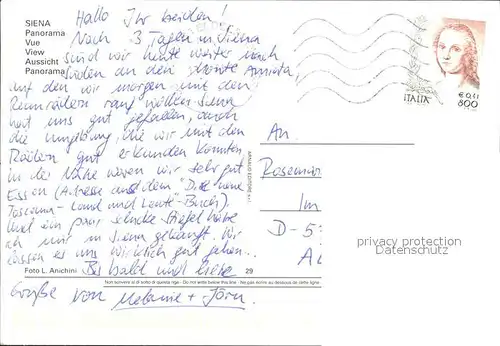 SIENA
Panorama
Vue
View
Aussicht
Panorama
Hallo Ihr beiden!
Nach 3 Tagen in Siena
sind wir heute weiter nach
Süden an den Monte Amiata,
auf den wir morgen mit den
Rennrädern rauf wollen. Siena
hat uns gut gefallen, auch
die Umgebung die wir mit den
Rädern gut erkunden konnten
in der Nähe waren wir sehr gut
Essen (Adresse aus dem "Die neue
Toscana - Land und Leute"-Buch).
Und ein paar schicke Stiefel habe
ich mir in Siena gekauft. Wir
lassen es uns wirklich gut gehen.
Bis bald und liebe
Grüße von Melanie + Jörn.
Foto L. Anichini
29
Non scrivere al di sotto di questa riga - Do not write below this line - Ne pas écrire au dessous de cette ligne
ITALIA
€ 0,41
800
An
Rosemar
Im
D-5
privacy protection
Datenschutz